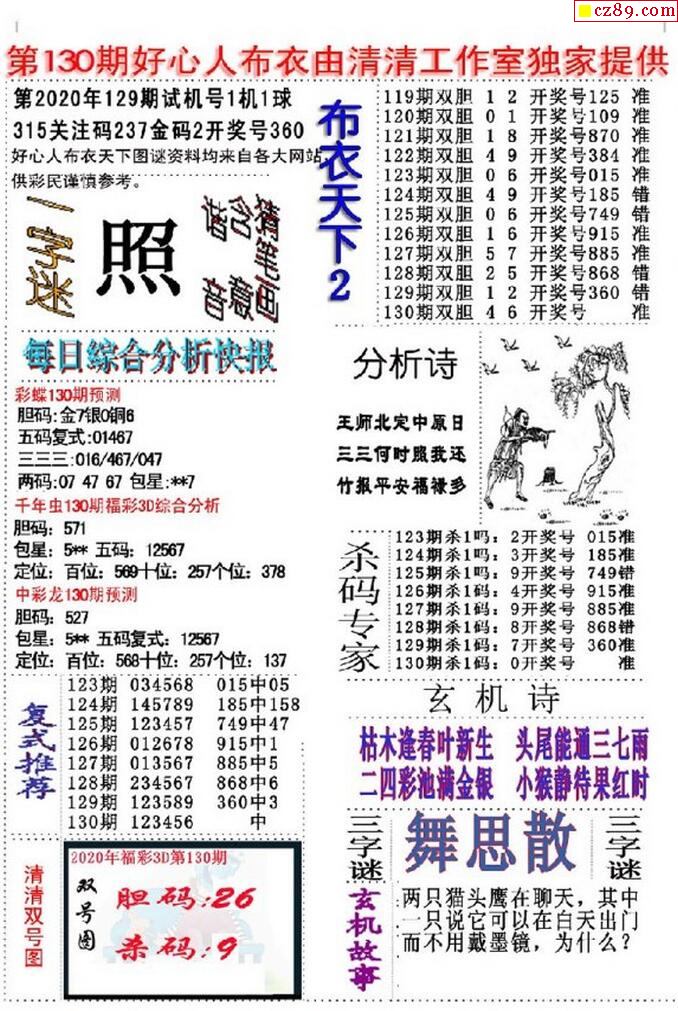 cz89.com
第130期好心人布衣由清清工作室独家提供
第2020年129期试机号1机1球
315关注码237金码2开奖号360
好心人布衣天下图谜资料均来自各大网站
供彩民谨慎参考。
一字迷
照
猜笔画
含意
谐音
每日综合分析快报
彩蝶130期预测
胆码:金7银0铜6
五码复式:01467
三三三:016/467/047
两码:07 47 67 包星:**7
千年虫130期福彩3D综合分析
胆码: 571
包星: 5** 五码: 12567
定位: 百位: 569十位: 257个位: 378
中彩龙130期预测
胆码: 527
包星: 5** 五码复式: 12567
定位: 百位: 568十位: 257个位: 137
复式推荐
123期 034568 015中05
124期 145789 185中158
125期 123457 749中47
126期 012678 915中1
127期 013567 885中5
128期 234567 868中6
129期 123589 360中3
130期 123456 中
清清双号图
2020年福彩3D第130期
双号图
胆码:26
杀码:9
布衣天下2
119期双胆 1 2 开奖号125 准
120期双胆 0 1 开奖号109 准
121期双胆 1 8 开奖号870 准
122期双胆 4 9 开奖号384 准
123期双胆 0 6 开奖号015 准
124期双胆 4 9 开奖号185 错
125期双胆 0 6 开奖号749 错
126期双胆 1 6 开奖号915 准
127期双胆 5 7 开奖号885 准
128期双胆 2 5 开奖号868 错
129期双胆 1 2 开奖号360 错
130期双胆 4 6 开奖号 准
分析诗
王师北定中原日
三三何时照我还
竹报平安福禄多
杀码专家
123期杀1吗: 2开奖号 015准
124期杀1吗: 3开奖号 185准
125期杀1吗: 9开奖号 749错
126期杀1码: 4开奖号 915准
127期杀1码: 9开奖号 885准
128期杀1码: 8开奖号 868错
129期杀1码: 7开奖号 360准
130期杀1码: 0开奖号 准
玄机诗
枯木逢春叶新生 头尾能通三七雨
二四彩池满金银 小猴静待果红时
三字谜
舞思散
三字谜
玄机故事
两只猫头鹰在聊天，其中
一只说它可以在白天出门
而不用戴墨镜，为什么？